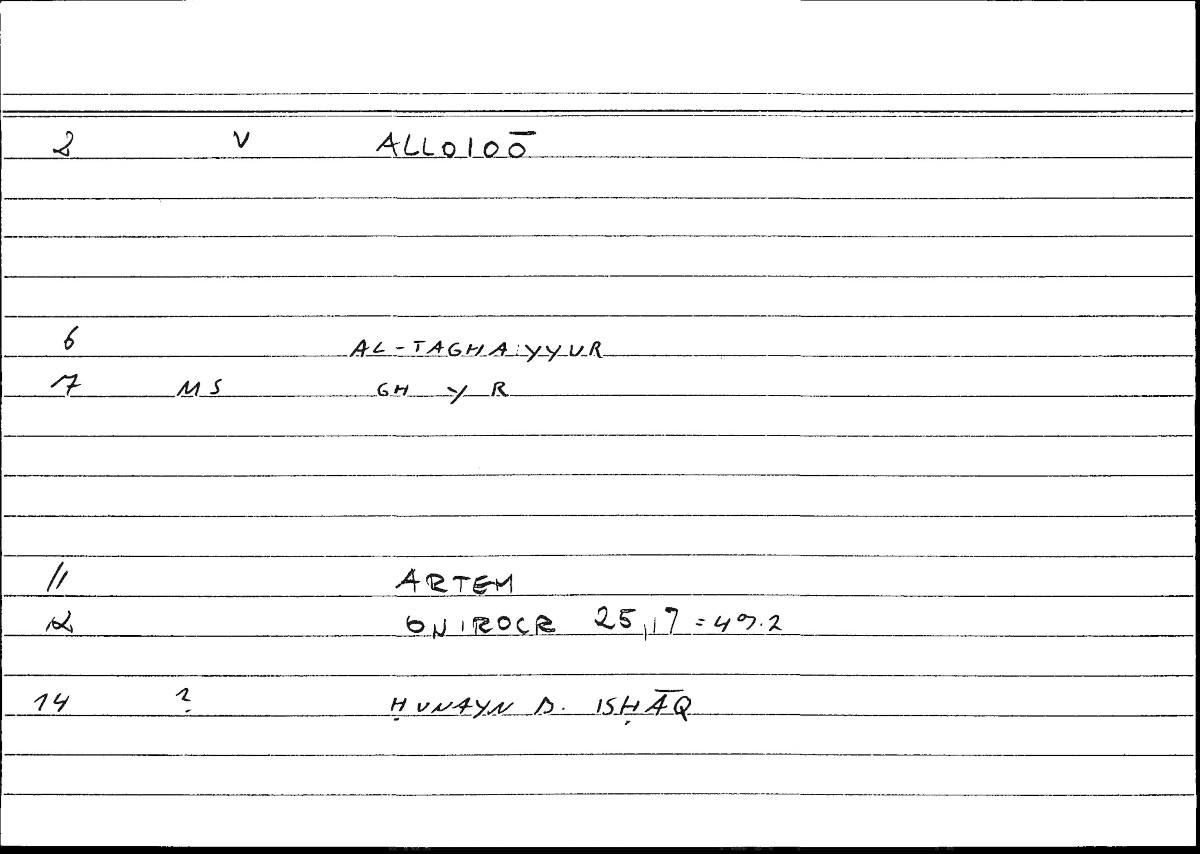 2 V ALLOIOŌ
6 AL-TAGHAYYUR
7 MS GH Y R
11 ARTEM
12 ONIROCR 25,17 = 49.2
14 ? ḤUNAYN B. ISḤĀQ